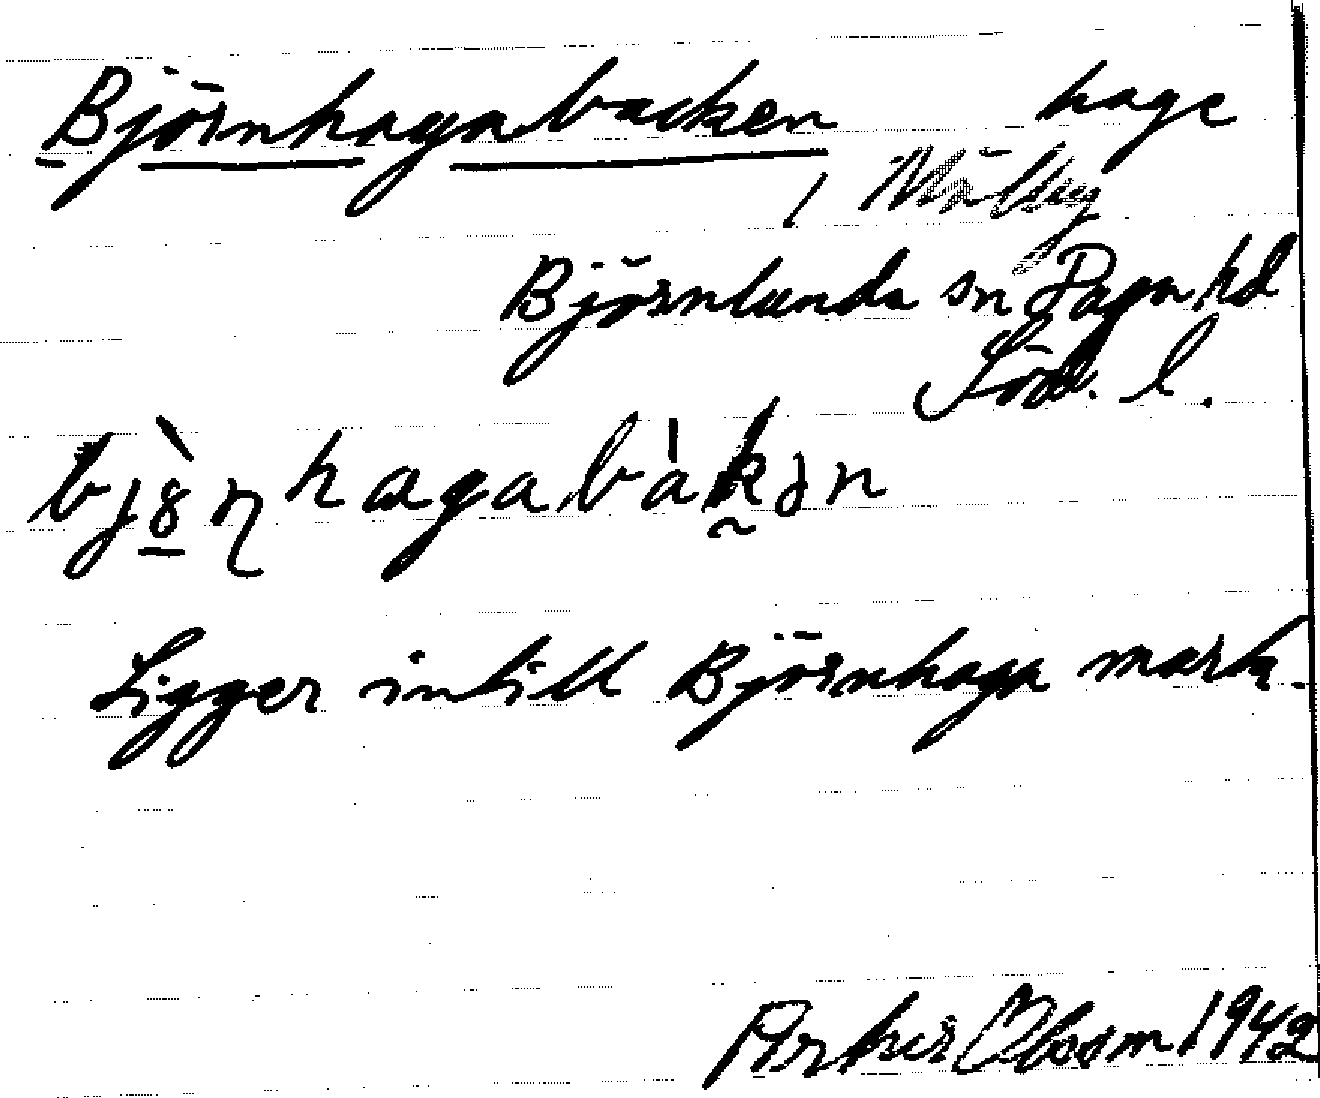 Björnhagabacken hage
/ Mälby
Björnlunda sn Daga hd
Söd. l.
bjö̀ɳhagabàkən
Ligger intill Björnhaga mark.
Arthur 1942